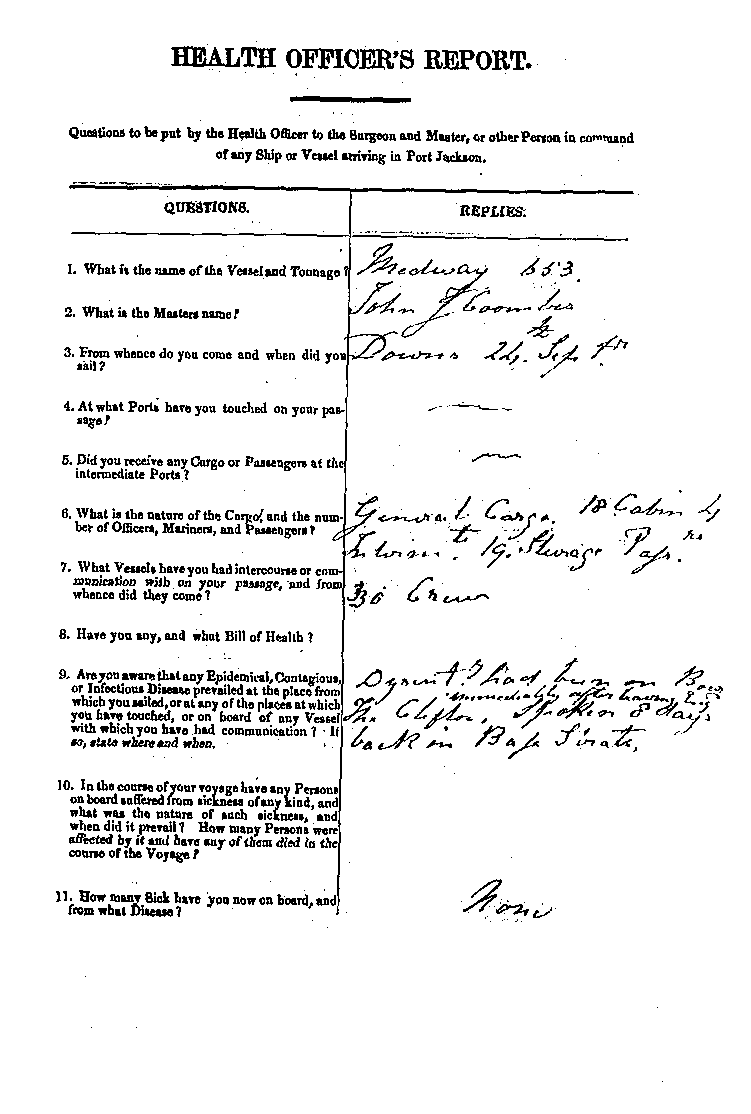 HEALTH OFFICER'S REPORT.
Questions to be put by the Health Officer to the Surgeon and Master, or other Person in command
of any Ship or Vessel arriving in Port Jackson.
QUESTIONS.
REPLIES.
1. What is the name of the Vessel and Tonnage?
Medway 653.
2. What is the Masters name?
John Coombes
3. From whence do you come and when did you
sail?
Downs 24th Septr
4. At what Ports have you touched on your pas-
sage?
—
5. Did you receive any Cargo or Passengers at the
intermediate Ports?
—
6. What is the nature of the Cargo, and the num-
ber of Officers, Mariners, and Passengers?
General Cargo. 18 Cabin 4
19. Sterage Passrs
7. What Vessels have you had intercourse or com-
munication with on your passage, and from
whence did they come?
30 Crew
8. Have you any, and what Bill of Health?
9. Are you aware that any Epidemical, Contagious,
or Infectious Disease prevailed at the place from
which you sailed, or at any of the places at which
you have touched, or on board of any Vessel
with which you have had communication? If
so, state where and when.
Dysenty had been on Board
immediately after leaving Engd
The Clifton, Spoken 8 days
back in Bass Strats,
10. In the course of your voyage have any Persons
on board suffered from sickness of any kind, and
what was the nature of such sickness, and
when did it prevail? How many Persons were
affected by it and have any of them died in the
course of the Voyage?
11. How many Sick have you now on board, and
from what Disease?
None